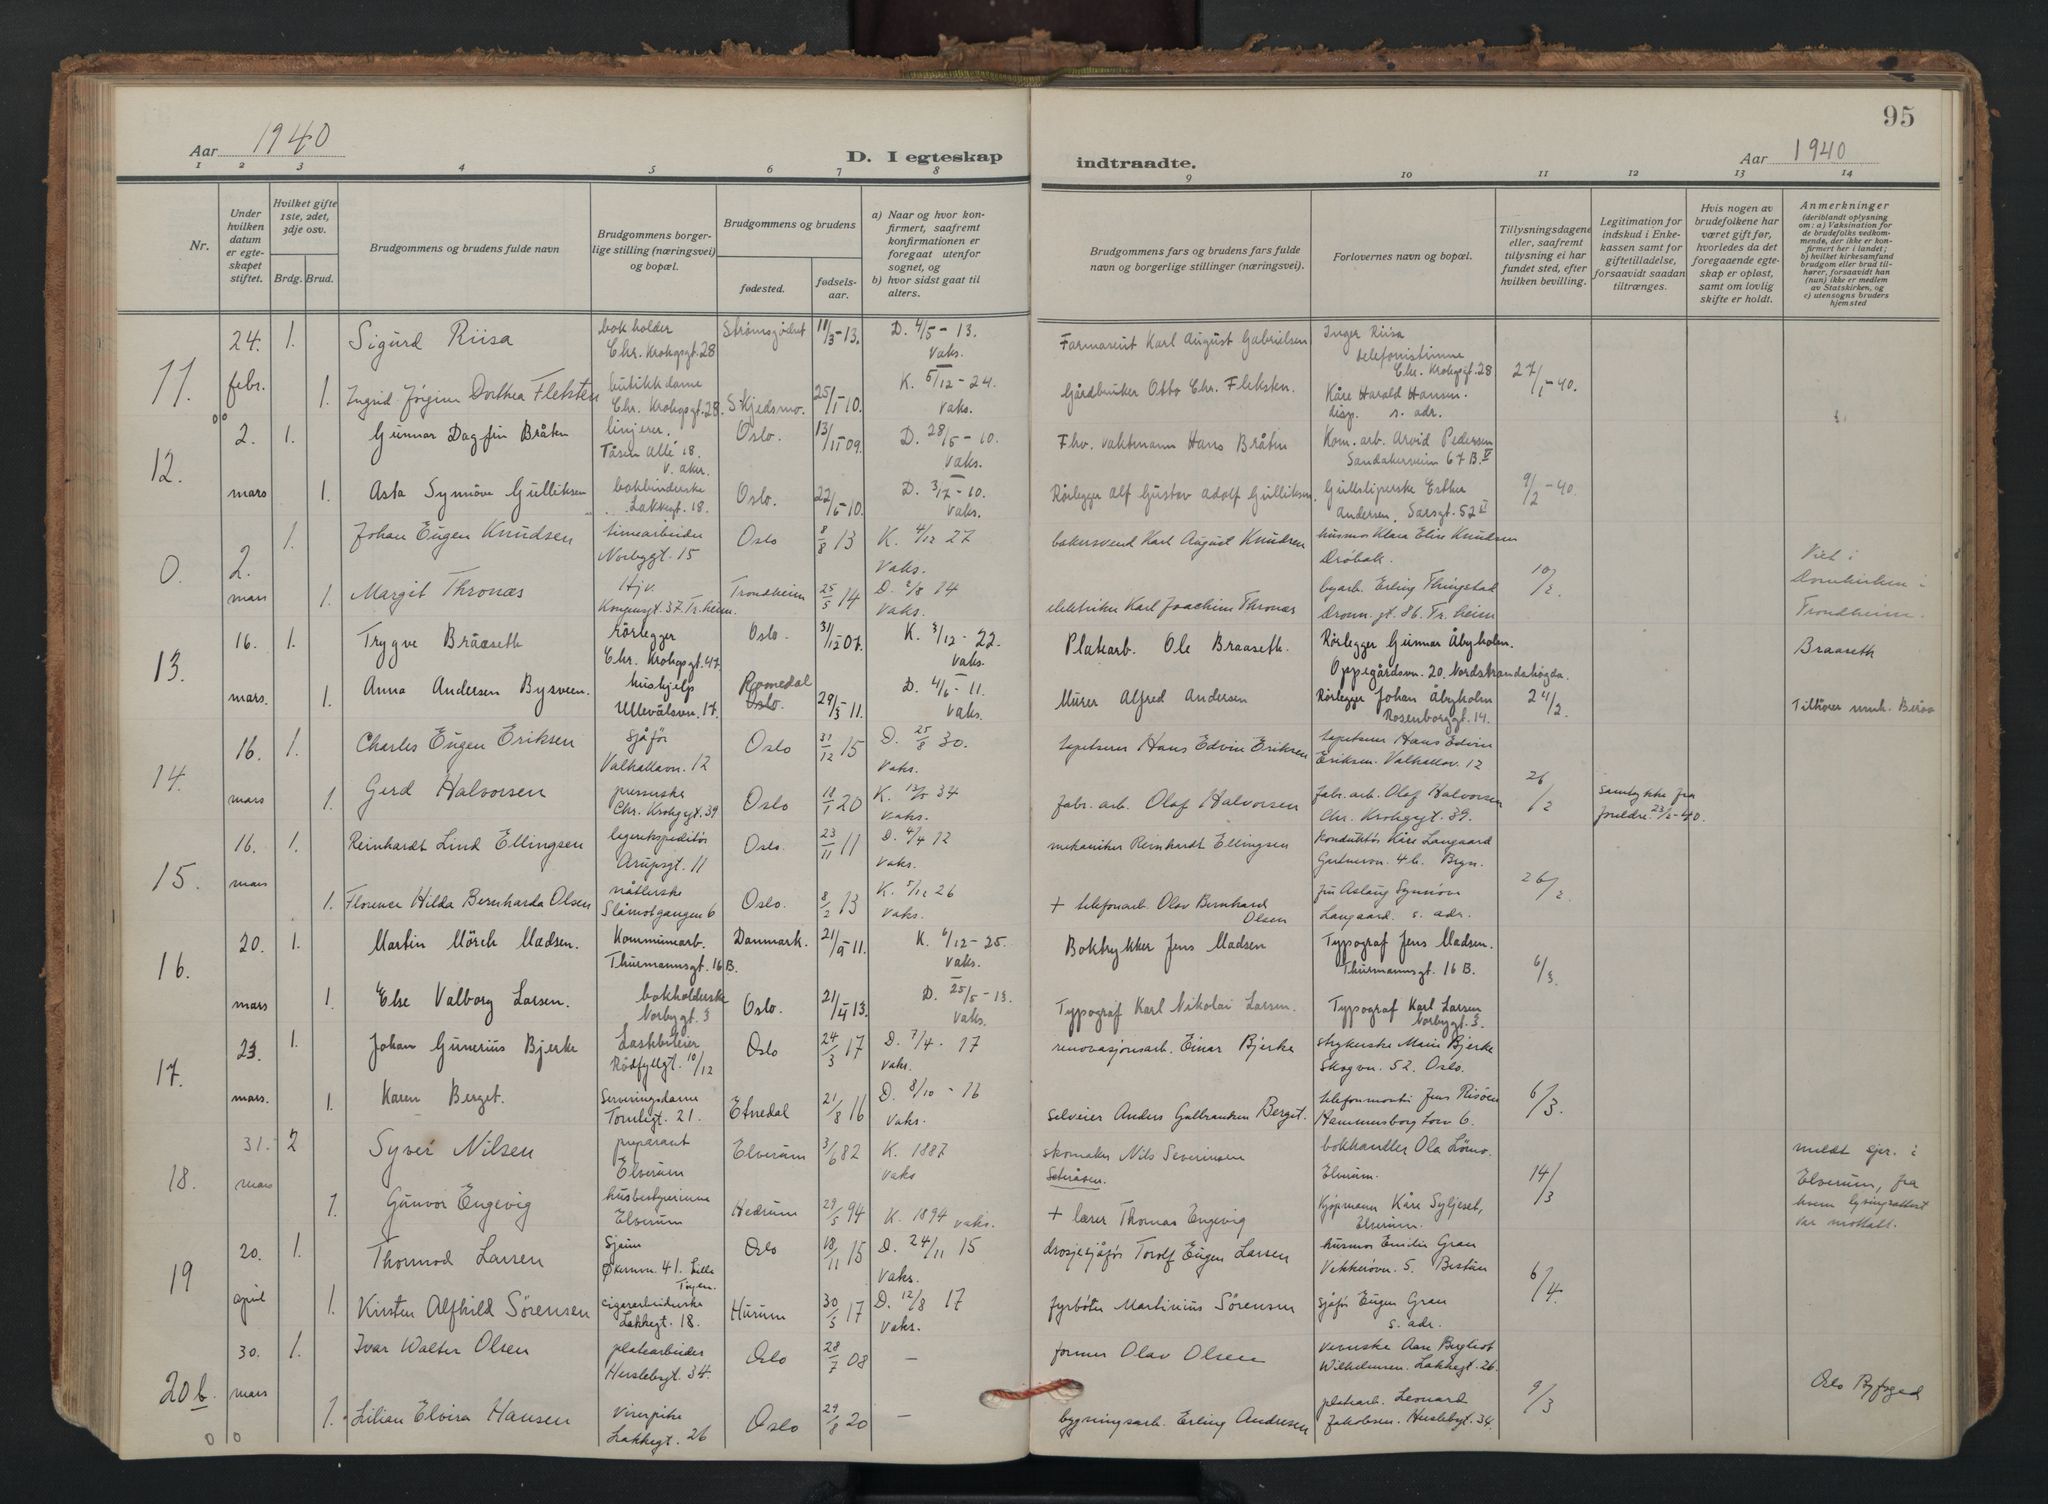 95
Aar 1940
D. I egteskap indtraadte.
Aar 1940
1 2 3 4 5 6 7 8 9 10 11 12 13 14
Nr.
Under hvilken datum er egteskapet stiftet.
Hvilket gifte 1ste, 2det, 3dje osv.
Brdg. Brud.
Brudgommens og brudens fulde navn
Brudgommens borgerlige stilling (næringsvei) og bopæl.
Brudgommens og brudens
fødested.
fødselsaar.
a) Naar og hvor konfirmert, saafremt konfirmationen er foregaat utenfor sognet, og
b) hvor sidst gaat til alters.
Brudgommens fars og brudens fars fulde navn og borgerlige stillinger (næringsvei).
Forlovernes navn og bopæl.
Tillysningsdagene eller, saafremt tillysning ei har fundet sted, efter hvilken bevilling.
Legitimation for indskud i Enkekassen samt for giftetilladelse, forsaavidt saadan tiltrænges.
Hvis nogen av brudefolkene har været gift før, hvorledes da det foregaaende egteskap er opløst, samt om lovlig skifte er holdt.
Anmerkninger
(deriblandt oplysning om: a) Vaksination for de brudefolks vedkommende, der ikke er konfirmert her i landet; b) hvilket kirkesamfund brudgom eller brud tilhører, forsaavidt han (hun) ikke er medlem av Statskirken, og c) utensogns bruders hjemsted
11. 24. febr. 1. Sigurd Riisa bokholder Chr. Krohgsgt. 28 Strømsgodset 11/3-13. D. 4/5-13. vaks. Farmaseut Karl August Gabrielsen Inger Riisa telefonistinne Chr. Krohgsgt. 28 27/1-40.
1. Ingrid Jörgine Dorthea Fleksten butikkdame Chr. Krohgsgt. 28. Skjedsmo. 25/1-10. K. 5/12-24. vaks. Gårdbruker Otto Chr. Fleksten. Kåre Harald Hansen. disp. s. adr.
12. 2. mars 1. Gunnar Dagfin Bråten linjerer. Tåsen Allé 18. v. aker. Oslo. 13/11-09. D. 28/5-10. vaks. Fhv. vaktmann Hans Bråten Kom. arb. Arvid Pedersen Sandakerveien 67 B. V 9/2-40.
1. Asta Synnöve Gulliksen bokbinderske Lakkegt. 18. Oslo. 22/6-10. D. 3/17-10. vaks. Rörlegger Alf Gustav Adolf Gulliksen. Gullsliperske Esther Andersen, Sarsgt. 52
0. 2. mars 1. Johan Eugen Knudsen timearbeider Norbygt. 15 Oslo 8/8 13 K. 4/12 27 vaks. bakersvend Karl August Knudsen husmor Klara Elise Knudsen Dröbak. 10/2. Viet i Domkirken i Trondheim.
1. Margit Thronæs Hjv. Kongensgt. 37. Tr.heim. Trondheim 25/5 14 D. 2/8 14 vaks. elektriker Karl Joachim Thronæs byarb. Erling Thingstad Dronn. gt. 86. Tr. heim
13. 16. mars. 1. Trygve Brååseth rörlegger Chr. Krohgsgt. 47 Oslo. 31/12 07. K. 3/12-22. vaks. Platearb. Ole Braaseth. Rörlegger Gunnar Åbyholm. Oppegårdsvn. 20. Nordstrandshögda. 24/2. Braaseth
1. Anna Andersen Bysveen. hushjelp Ullevålsvn. 17. Romedal Oslo. 29/3-11. D. 4/6-11. vaks. Murer Alfred Andersen Rörlegger Johan Åbyholm Rosenborggt. 14. Tilhører
14. 16. mars 1. Charles Eugen Eriksen sjåför Valhallavn. 12 Oslo 31/12 15 D. 25/8 30. vaks. tapetserer Hans Edvin Eriksen tapetserer Hans Edvin Eriksen. Valhallav. 12 26/2 samtykke fra foreldre. 23/2-40.
1. Gerd Halvorsen presserske Chr. Krohgsgt. 39 Oslo 18/1 20 K. 34 vaks. fabr. arb. Olaf Halvorsen fabr. arb. Olaf Halvorsen Chr. Krohgsgt. 39.
15. 16. mars 1. Reinhardt Lind Ellingsen lagerekspeditör Arupsgt. 11 Oslo. 23/11 11 D. 4/4 12 vaks. mekaniker Reinhardt Ellingsen konduktör Kåre Langaard Gartnervn. 4 b. Bryn. 26/2.
1. Florence Hilda Bernharda Olsen nåtlerske Slåmotgangen 6 Oslo. 8/2 13 K. 5/12 26 vaks. + telefonarb. Olav Bernhard Olsen fru Aslaug Synnöve Langaard. s. adr.
16. 20. mars 1. Martin Mörch Madsen. Kommunearb. Thurmannsgt. 16 B. Danmark. 21/9-11. K. 6/12-25. vaks. Boktrykker Jens Madsen Typograf Jens Madsen. Thurmannsgt. 16 B. 6/3.
1. Else Valborg Larsen. bokholderske Norbygt. 3 Oslo. 21/4 13. D. 25/5-13. vaks. Typograf Karl Nikolai Larsen. Typograf Karl Larsen Norbygt. 3.
17. 23. mars. 1. Johan Gunerius Bjerke Lastebileier Rödfyllgt. 10/12 Oslo 24/3 17 D. 7/4-17 vaks. renovasjonsarb. Einar Bjerke strykerske Marie Bjerke Skogvn. 52. Oslo. 6/3.
1. Karen Berget. Serveringsdame Tomtegt. 21. Etnedal 21/8 16 D. 8/10-16 vaks. selveier Anders Gulbrandsen Berget. telefonmontör Jens Risöen Hammersborg torv 6.
18. 31. mars 2 Syver Nilsen preparant Elverum Elverum 3/6 82 K. 1887 vaks skomaker Nils Severinsen Seteråsen. bokhandler Ola Lömo. Elverum. 14/3 meldt spr. i Elverum, fra hvem lysingsattest var mottatt.
1. Gunvor Engevig husbestyrerinne Elverum Hedrum 29/5 94 K. 1894 vaks. + lærer Thomas Engevig kjøpmann Kåre Syljeset, Elverum.
19 20. april 1. Thormod Larsen Sjåför Økernvn. 41. Lille Töyen. Oslo 18/11 15 D. 24/11 15 vaks. drosjesjåför Torolf Eugen Larsen husmor Emilie Gran Vekkerövn. 5. Bestun 6/4.
1. Kirsten Alfhild Sörensen cigararbeiderske Lakkegt. 18. Hurum 30/5 17 D. 12/8 17 vaks. fyrböter Martinius Sörensen sjåför Eugen Gran s. adr.
20 b. 30. mars 1. Ivar Walter Olsen platearbeider Herslebsgt. 34. Oslo 28/7 08 — former Olav Olsen servitör Aase Bergliot Wilhelmsen. Lakkegt. 26. 9/3 Oslo Byfoged
1. Lilian Elvira Hansen viserpike Lakkegt. 26 Oslo 29/8 20 — bygningsarb. Erling Andresen platearb. Leonard Jakobsen. Herslebsgt. 34.
0 0